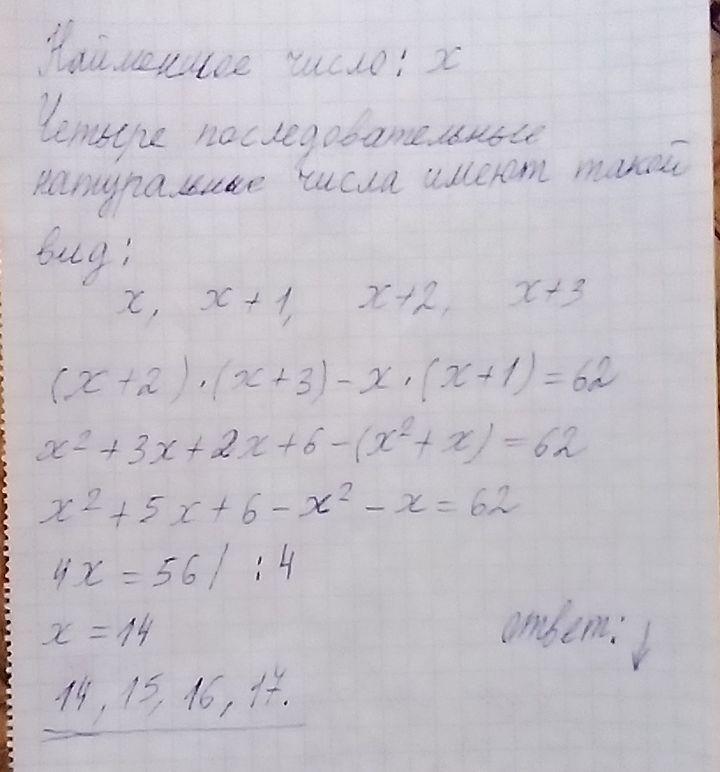 Найменшое число: x
Четыре последовательные
натуральные числа имеют такой
вид:
x, x+1, x+2, x+3
(x+2)·(x+3)-x·(x+1)=62
x²+3x+2x+6-(x²+x)=62
x²+5x+6-x²-x=62
4x=56/ :4
x=14
ответ: ↓
14, 15, 16, 17.